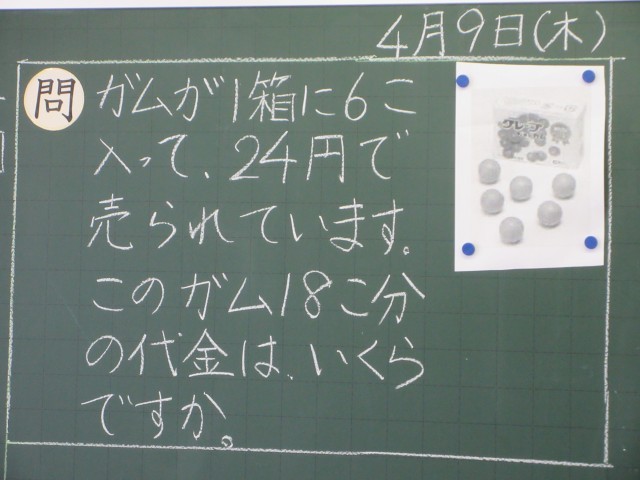 4月9日(木)
問 ガムが1箱に6こ
入って、24円で
売られています。
このガム18こ分
の代金は、いくら
ですか。
グレープ